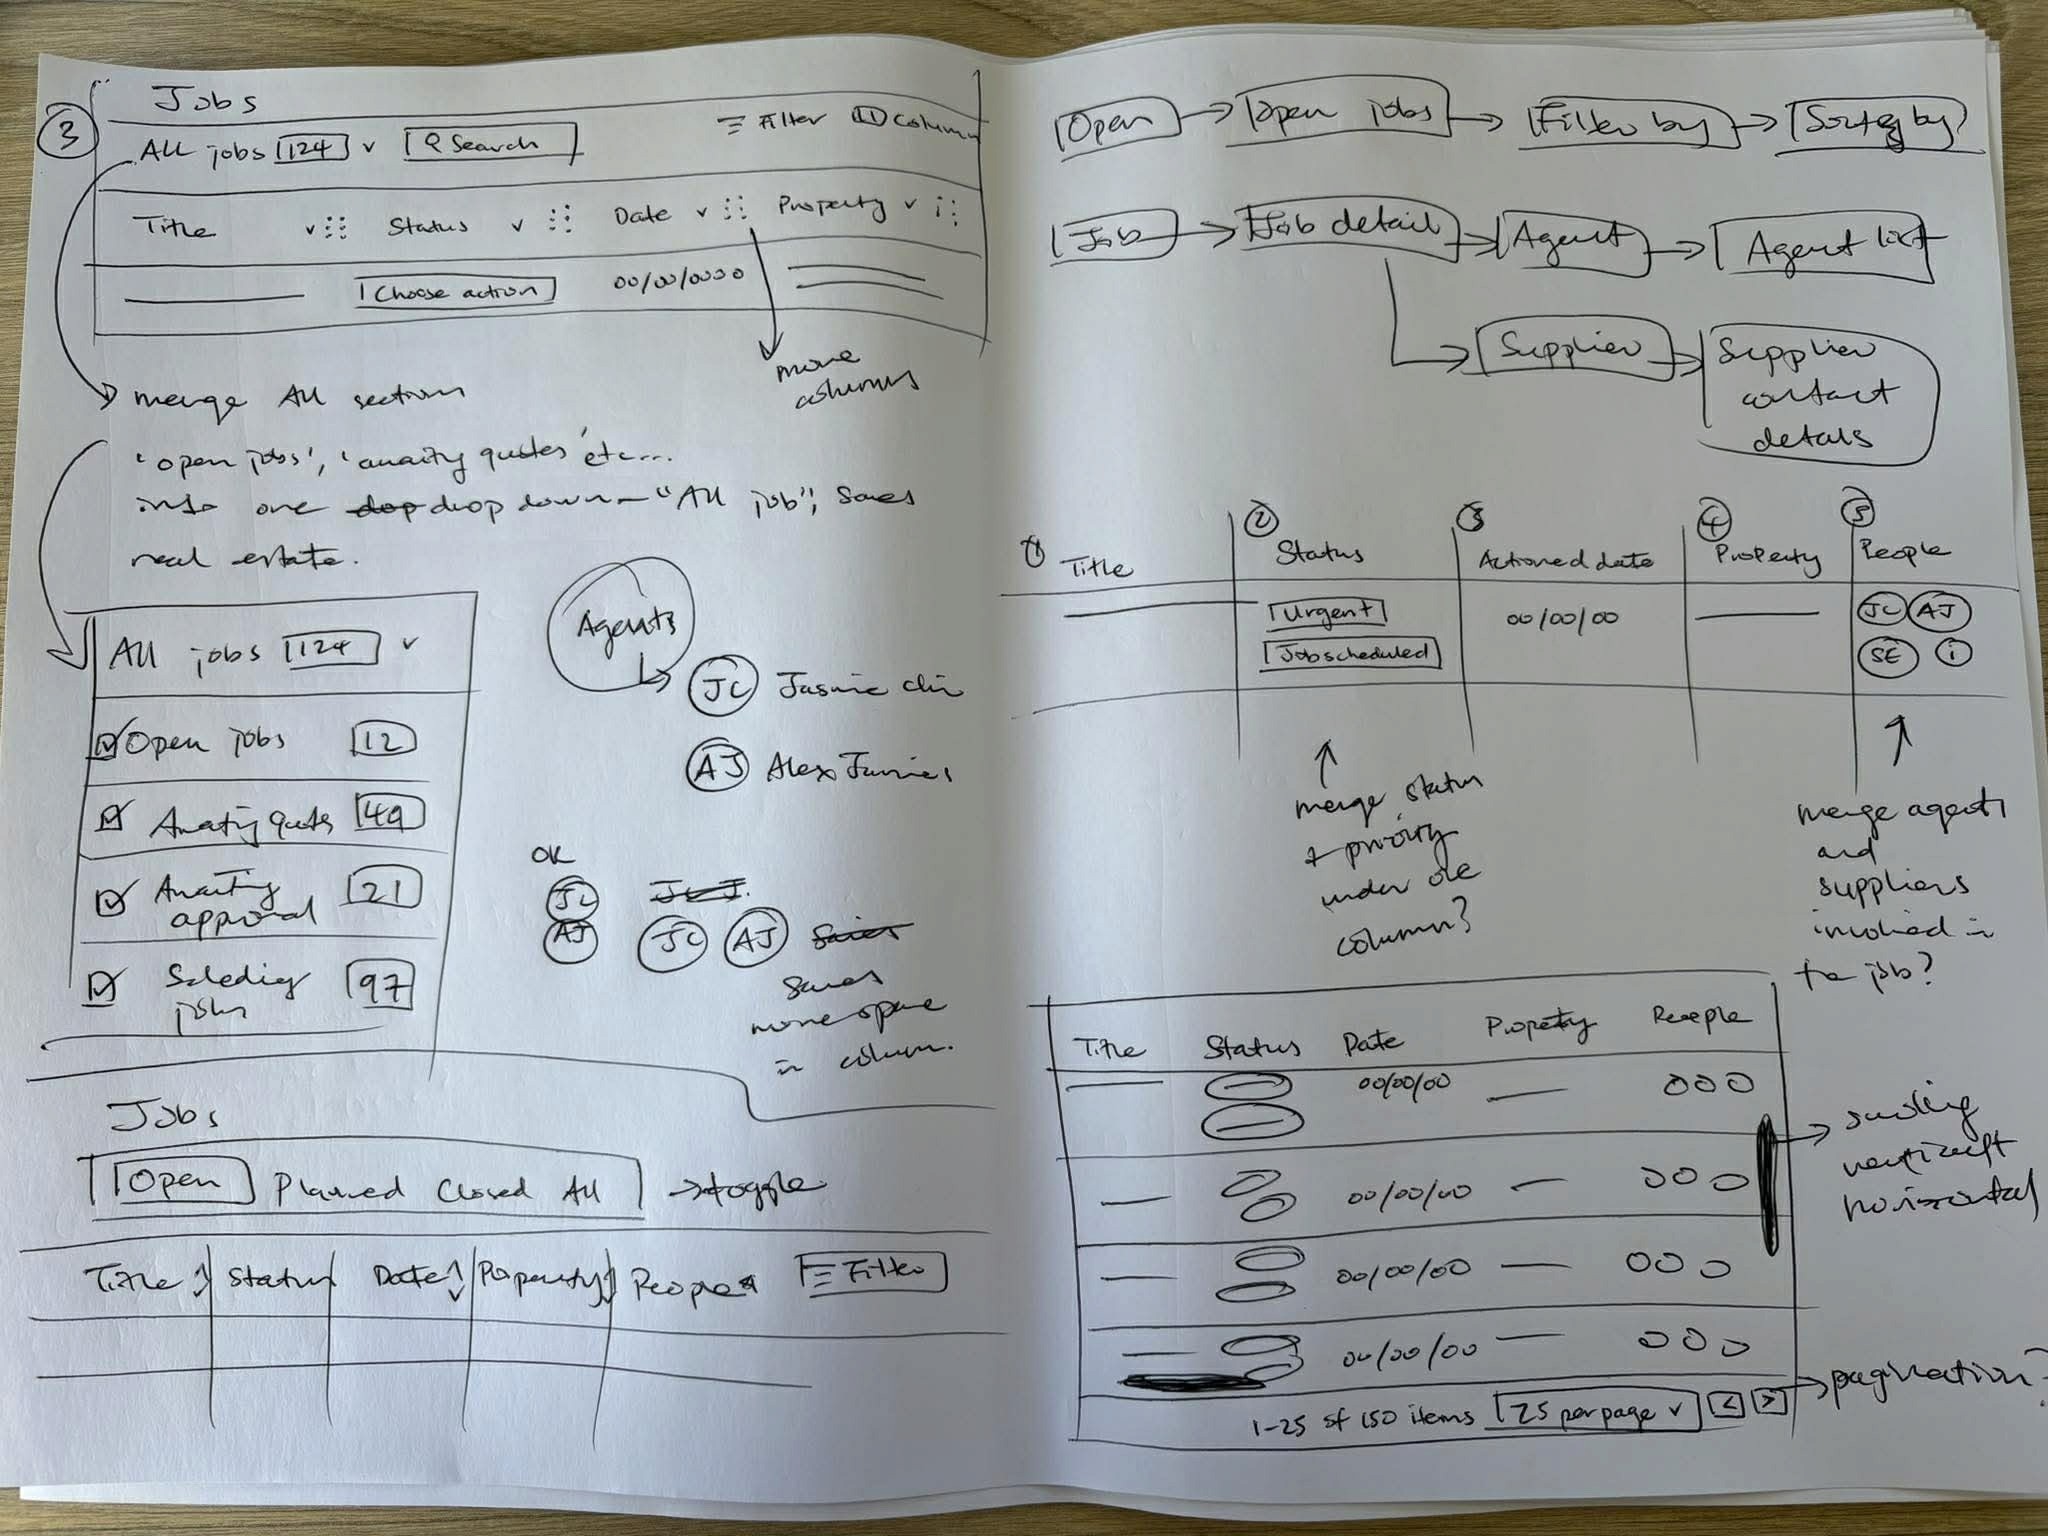 3
Jobs
All jobs 124 Search
Filter Column
Title Status Date Property
Choose action 00/00/0000
move
columns
merge All section
'open jobs', 'awaity quotes' etc...
into one drop down - "All job", saves
real estate.
All jobs 124
Open jobs 12
49
Awaiting
approval 21
jobs 97
Agents
JC
AJ Alex
OR
JC
AJ
JC AJ
saves
more space
in column.
Jobs
Open Planned Closed All → toggle
Title Status Date Property People Filter
Open → Open jobs → Filter by → by
Job → Job detail → Agent → Agent list
Supplier → Supplier
contact
details
1 2 3 4 5
Title Status Actioned date Property People
Urgent 00/00/00 JC AJ
Job scheduled SE i
merge status
+ priority
under one
column?
merge agents
and
suppliers
involved in
the job?
Title Status Date Property People
00/00/00
00/00/00
00/00/00
00/00/00
horizontal
1-25 of 150 items 25 per page < >
pagination?